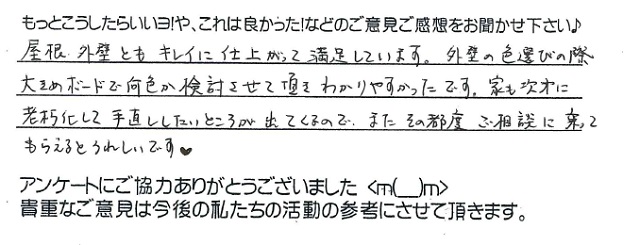 もっとこうしたらいいヨ!や、これは良かった!などのご意見ご感想をお聞かせ下さい♪
屋根 外壁ともキレイに仕上がって満足しています。外壁の色選びの際
大きめボードで何色か検討させて頂きわかりやすかったです。家も次才に
老朽化して手直ししたいところが出てくるので、またその都度ご相談に乗って
もらえるとうれしいです♥
アンケートにご協力ありがとうございました <m(__)m>
貴重なご意見は今後の私たちの活動の参考にさせて頂きます。